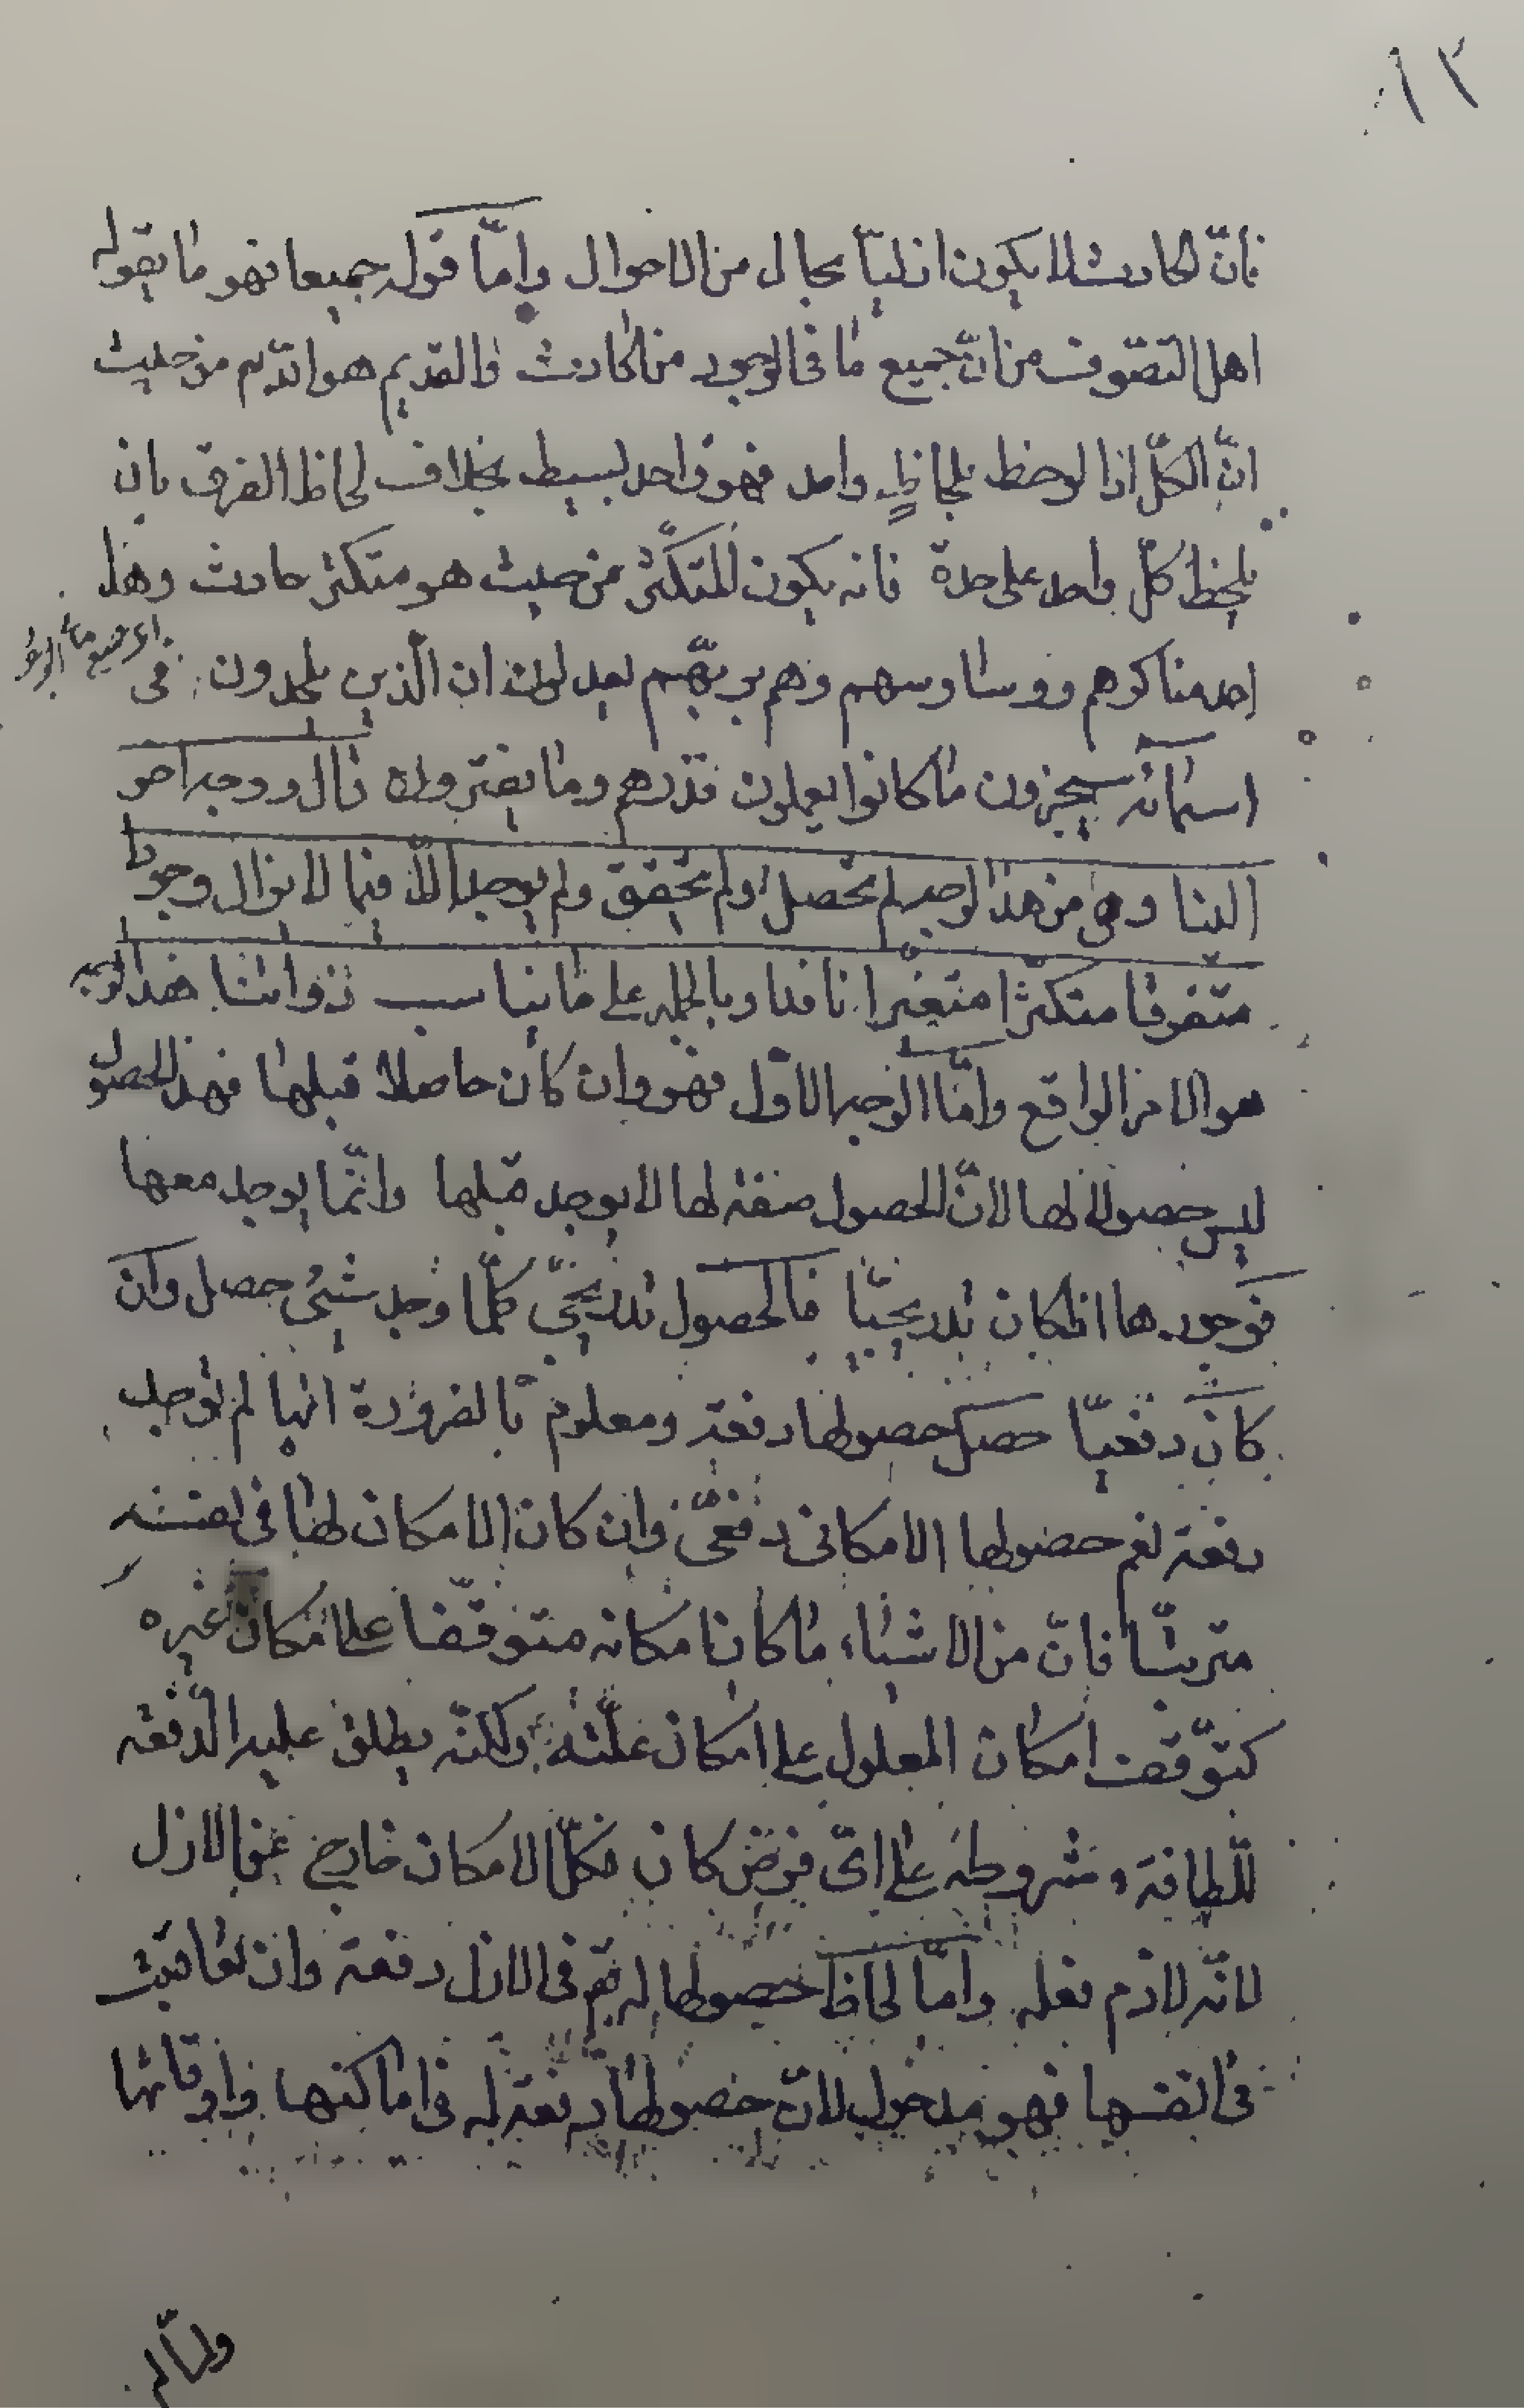 ١٢
فانّ الحادث لا يكون ازليّاً بحال من الاحوال وامّا قوله جميعا فهو ما يقوله
اهل التصوّف من انّ جميع ما فى الوجود من الحادث والقديم هو القديم من حيث
انّ الكلّ اذا لوحظ بلحاظٍ واحد فهو واحد بسيط بخلاف لحاظ الفرق بان
يلحظ كلّ واحد على حدة فانه يكون المتكثّر من حيث هو متكثر حادث وهذا
احد مناكرهم ووساوسهم وهم بربّهم يعدلون ان الّذين يلحدون فى
اسمائه سيجزون ما كانوا يعملون فذرهم وما يفترون قال ووجه اخر
الينا وهى من هذا الوجه لم تحصل ولم تحقق ولم يوجد الّا فيما لا يزال وجودا
متفرقا متكثرا متغيرا نافدا وبالجمله على ما يناسب ذواتنا هذا الوجه
هو الامر الواقع وامّا الوجه الاوّل فهو وان كان حاصلا قبلها فهذا الحصول
ليس حصولا لها لانّ الحصول صفة لها لا يوجد قبلها وانّما يوجد معها
فوجودها ان كان تدريجيّا فالحصول تدريجىّ كلّما وجد شىء حصل وان
كان دفعيّا حصل حصولها دفعة ومعلوم بالضرورة انها لم توجد
دفعة نعم حصولها الامكانى دفعىّ وان كان الامكان لها فى نفسه
مترتبّا فانّ من الاشياء ما كان امكانه متوقّفا على امكان غيره
كتوقّف امكان المعلول على امكان علّته ولكنّه يطلق عليه الدّفعة
للطافة شروطه على اىّ فرض كان فكلّ الامكان خارج عن الازل
لانّه لازم فعله وامّا لحاظ حصولها له تع فى الازل دفعة وان تعاقبت
فى انفسها فهو مدخول لانّ حصولها دفعة له فى اماكنها واوقاتها
ولمّا لم